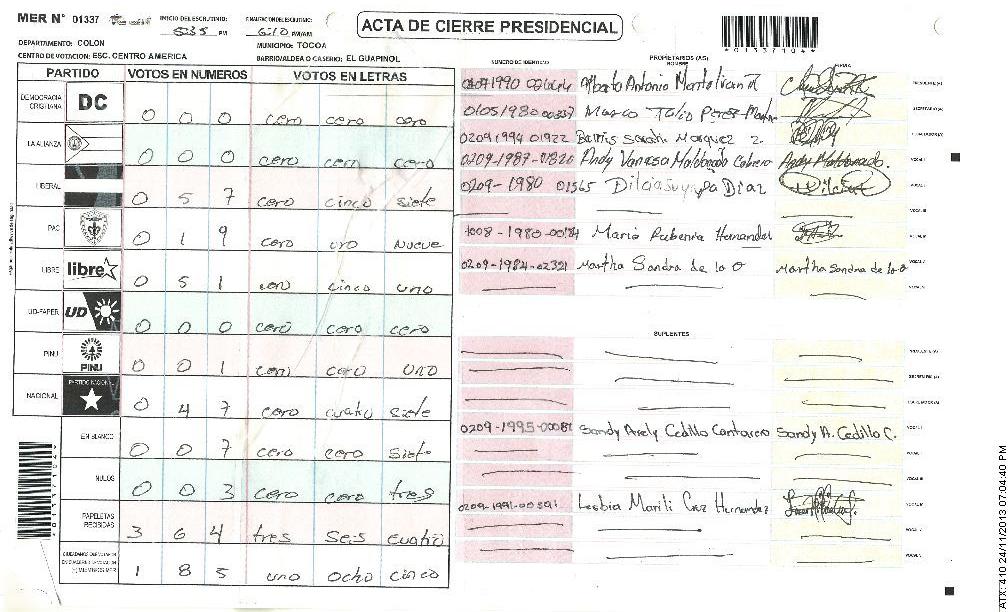 MER N° 01337 INICIO DEL ESCRUTINIO: 535 PM FINALIZACION DEL ESCRUTINIO: 610 PM/AM
ACTA DE CIERRE PRESIDENCIAL
*01337104*
DEPARTAMENTO: COLON MUNICIPIO: TOCOA
CENTRO DE VOTACION: ESC. CENTRO AMERICA BARRIO/ALDEA O CASERIO: EL GUAPINOL
PARTIDO VOTOS EN NUMEROS VOTOS EN LETRAS
DEMOCRACIA CRISTIANA DC 0 0 0 cero cero cero
LA ALIANZA 0 0 0 cero cero cero
LIBERAL 0 5 7 cero cinco siete
PAC 0 1 9 cero uno Nueve
LIBRE libre 0 5 1 cero cinco uno
UD-FAPER UD 0 0 0 cero cero cero
PINU PINU 0 0 1 cero cero uno
NACIONAL PARTIDO NACIONAL 0 4 7 cero cuatro siete
EN BLANCO 0 0 7 cero cero siete
NULOS 0 0 3 cero cero tres
PAPELETAS RECIBIDAS 3 6 4 tres seis cuatro
1 8 5 uno ocho cinco
*01337104*
PROPIETARIOS (AS)
NUMERO DE IDENTIDAD NOMBRE FIRMA
Alberto Antonio
0105 1980 00337 Marco Tulio
0209 1994 01922 Marquez
0209-1987-01820 Andy Vanessa Maldonado Cabrera Andy Maldonado.
0209-1980 01565 Dilcia Suyapa Diaz
1008-1980-00184 Maria Rubenia Hernandez
0209-1984-02321 Martha Sandra de la O Martha Sandra de la O
SUPLENTES
0209-1995-00081 Sandy Arely Cedillo Cantarero Sandy A. Cedillo C.
0209-1991-00591 Lesbia Marili Cruz Hernandez
ATX: 410 24/11/2013 07:04:40 PM